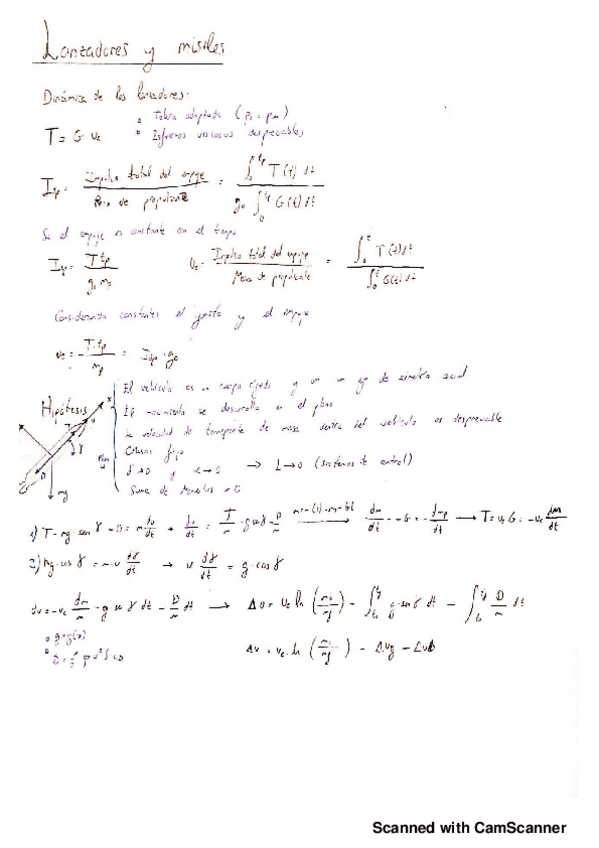 Lanzadores y misiles
Dinámica de los lanzadores:
• Tobera adaptada (ps = p∞)
T = G ve • Esfuerzos viscosos despreciables
Isp = Impulso total del empuje / Peso de propulsante = ∫₀^tp T(t) dt / g₀ ∫₀^tp G(t) dt
Si el empuje es constante en el tiempo
Isp = T·tp / g₀ mp ve = Impulso total del empuje / Masa de propulsante = ∫₀^t T(t) dt / ∫₀^t G(t) dt
Considerando constantes el gasto y el empuje
ve = T·tp / mp = Isp · g₀
Hipótesis
El vehículo es un cuerpo rígido y con un eje de simetría axial
El movimiento se desarrolla en el plano
La velocidad de transporte de masa dentro del vehículo es despreciable
→ L→0 (sistemas de control)
Suma de Momentos = 0
mg
1) T - mg·sen γ - D = m dv/dt → dv/dt = T/m - g sen γ - D/m → dm/dt = -G = -dmp/dt → T = ve G = -ve dm/dt
2) mg·cos γ = m·v dγ/dt → v dγ/dt = g·cos γ
dv = -ve dm/m - g sen γ dt - D/m dt → Δv = ve ln (m₀/mf) - ∫ g·sen γ dt - ∫ D/m dt
• g = g(z)
Δv = ve·ln (m₀/mf) - Δvg - ΔvD
Scanned with CamScanner